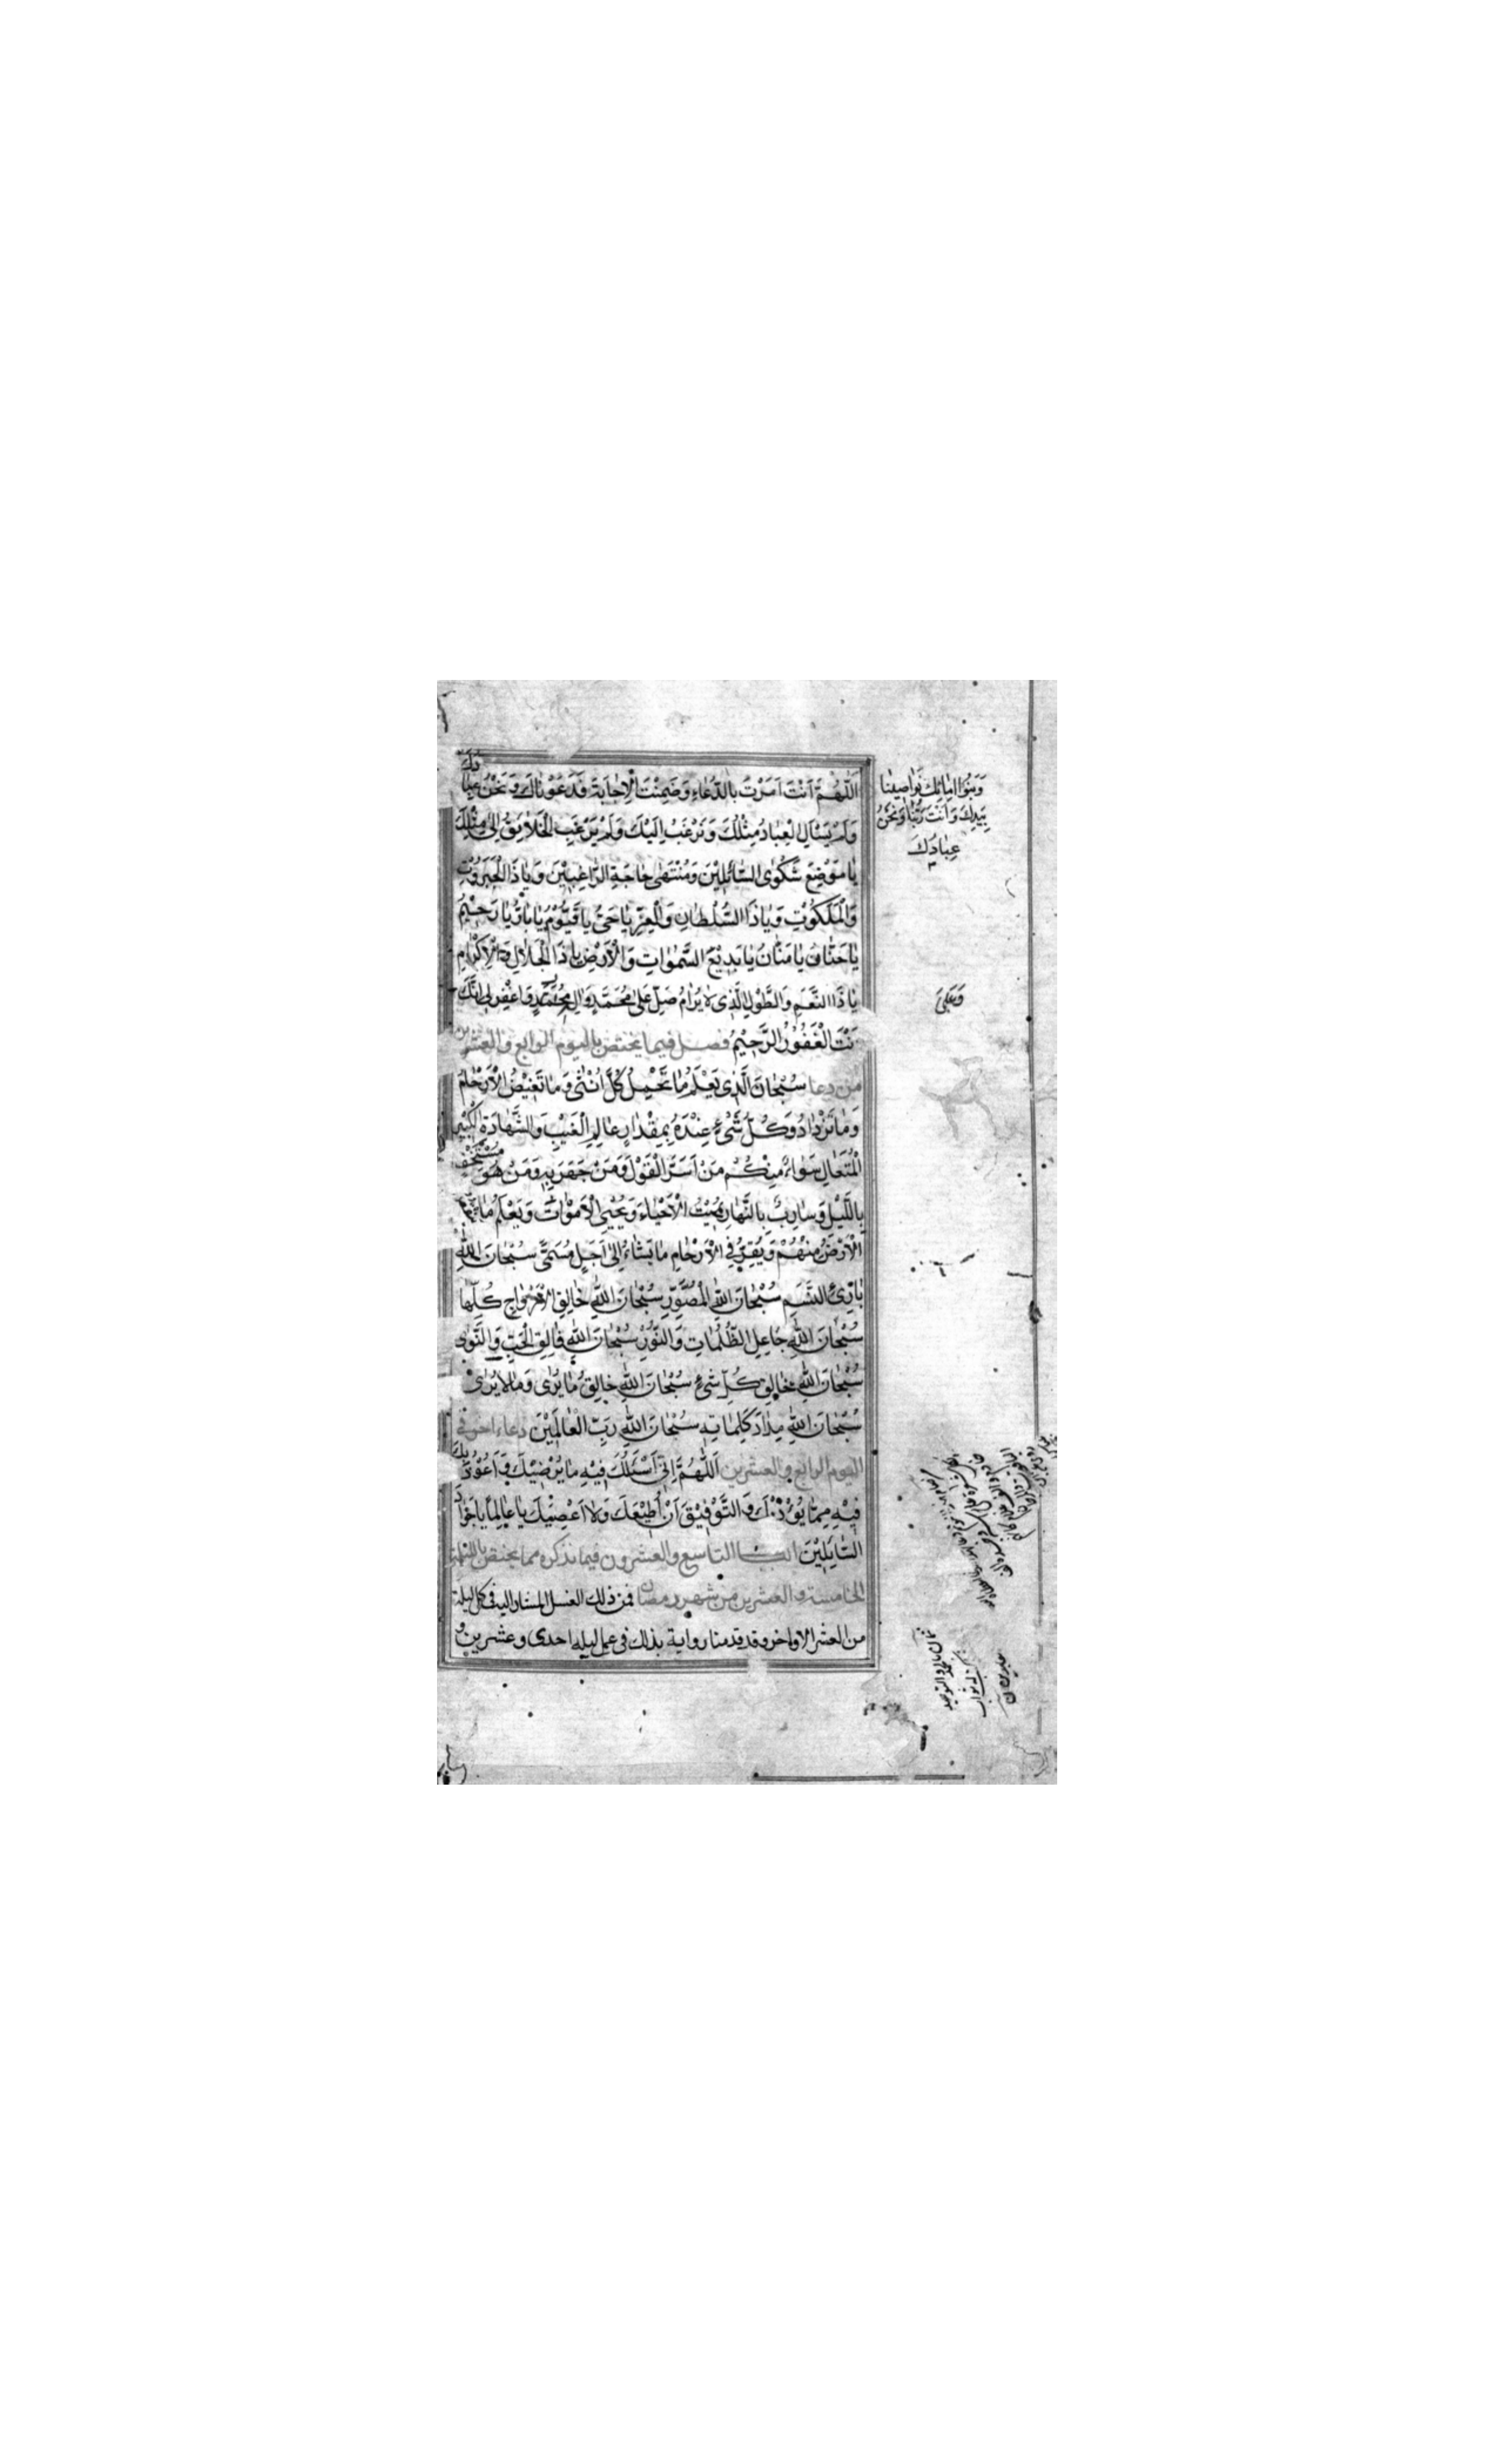 اَللّٰهُمَّ اَنْتَ اَمَرْتَ بِالدُّعٰاءِ وَضَمِنْتَ الْاِجٰابَةَ فَدَعَوْنٰاكَ وَنَحْنُ عِبٰادُكَ
وَلَمْ يَسْئَلِ الْعِبٰادُ مِثْلَكَ وَنَرْغَبُ اِلَيْكَ وَلَمْ يَرْغَبِ الْخَلٰايِقُ اِلىٰ مِثْلِكَ
يٰا مَوْضِعَ شَكْوَى السّٰائِلِيْنَ وَمُنْتَهىٰ حٰاجَةِ الرّٰاغِبِيْنَ وَيٰا ذَا الْجَبَرُوْتِ
وَالْمَلَكُوْتِ وَيٰا ذَا السُّلْطٰانِ وَالْعِزِّ يٰا حَىُّ يٰا قَيُّوْمُ يٰا بٰارُّ يٰا رَحِيْمُ
يٰا حَنّٰانُ يٰا مَنّٰانُ يٰا بَدِيْعَ السَّمٰوٰاتِ وَالْاَرْضِ يٰا ذَا الْجَلٰالِ وَالْاِكْرٰامِ
يٰا ذَا النِّعَمِ وَالطَّوْلِ الَّذِى لٰا يُرٰامُ صَلِّ عَلىٰ مُحَمَّدٍ وَاٰلِ مُحَمَّدٍ وَاغْفِرْ لِى اِنَّكَ
اَنْتَ الْغَفُوْرُ الرَّحِيْمُ فصل فيما يختص باليوم الرابع والعشرين
من دعا سُبْحٰانَ الَّذِى يَعْلَمُ مٰا تَحْمِلُ كُلُّ اُنْثىٰ وَمٰا تَغِيْضُ الْاَرْحٰامُ
وَمٰا تَزْدٰادُ وَكُلُّ شَىْءٍ عِنْدَهُ بِمِقْدٰارٍ عٰالِمِ الْغَيْبِ وَالشَّهٰادَةِ الْكَبِيْرِ
الْمُتَعٰالِ سَوٰاءٌ مِنْكُمْ مَنْ اَسَرَّ الْقَوْلَ وَمَنْ جَهَرَ بِهِ وَمَنْ هُوَ مُسْتَخْفٍ
بِاللَّيْلِ وَسٰارِبٌ بِالنَّهٰارِ يُمِيْتُ الْاَحْيٰاءَ وَيُحْيِى الْاَمْوٰاتَ وَيَعْلَمُ مٰا تَنْقُصُ
الْاَرْضُ مِنْهُمْ وَيُقِرُّ فِى الْاَرْحٰامِ مٰا يَشٰاءُ اِلىٰ اَجَلٍ مُسَمًّى سُبْحٰانَ اللّٰهِ
بٰارِئِ النَّسَمِ سُبْحٰانَ اللّٰهِ الْمُصَوِّرِ سُبْحٰانَ اللّٰهِ خٰالِقِ الْاَزْوٰاجِ كُلِّهٰا
سُبْحٰانَ اللّٰهِ جٰاعِلِ الظُّلُمٰاتِ وَالنُّوْرِ سُبْحٰانَ اللّٰهِ فٰالِقِ الْحَبِّ وَالنَّوىٰ
سُبْحٰانَ اللّٰهِ خٰالِقِ كُلِّ شَىْءٍ سُبْحٰانَ اللّٰهِ خٰالِقِ مٰا يُرىٰ وَمٰا لٰا يُرىٰ
سُبْحٰانَ اللّٰهِ مِدٰادَ كَلِمٰاتِهِ سُبْحٰانَ اللّٰهِ رَبِّ الْعٰالَمِيْنَ دعاء اخر فى
اليوم الرابع والعشرين اَللّٰهُمَّ اِنِّى اَسْئَلُكَ فِيْهِ مٰا يُرْضِيْكَ وَاَعُوْذُ بِكَ
فِيْهِ مِمّٰا يُؤْذِيْكَ وَالتَّوْفِيْقَ اَنْ اُطِيْعَكَ وَلٰا اَعْصِيَكَ يٰا عٰالِمًا يٰا جَوٰادَ
السّٰائِلِيْنَ الباب التاسع والعشرون فيما نذكره مما يختص بالليلة
الخامسة والعشرين من شهر رمضان فمن ذلك الغسل المشار اليه فى كل ليلة
من العشر الاواخر وقد قدمنا رواية بذلك فى عمل ليله احدى وعشرين و
وَبَنُوْا اِمٰائِكَ نَوٰاصِيْنٰا
بِيَدِكَ وَاَنْتَ رَبُّنٰا وَنَحْنُ
عِبٰادُكَ
وَعَلىٰ